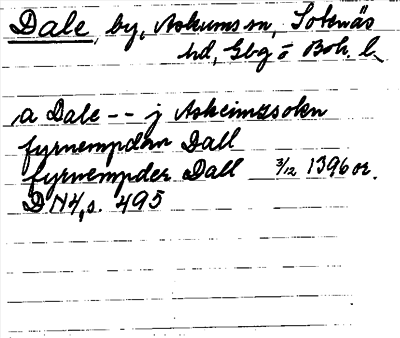 Dale, by, Askums sn, Sotenäs
hd, Gbg o Boh. l.
a Dale -- j Askeimssokn
fyrnempdan Dall
fyrnempder Dall 3/12 1396 or.
DN 4, s. 495